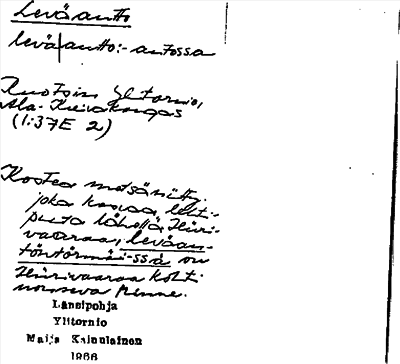 Leväantto
levä|antto:- antossa
Ruotsin Ylitornio,
Ala-Kuivakangas
(1:37E 2)
Kostea metsäniitty,
joka kasvaa lehti-
puita lähellä Hiiri-
vaaraa, levään-
töntörmä:-ssä on
Hiirivaaraa kohti
nouseva penne.
Länsipohja
Ylitornio
Maija Kainulainen
1966